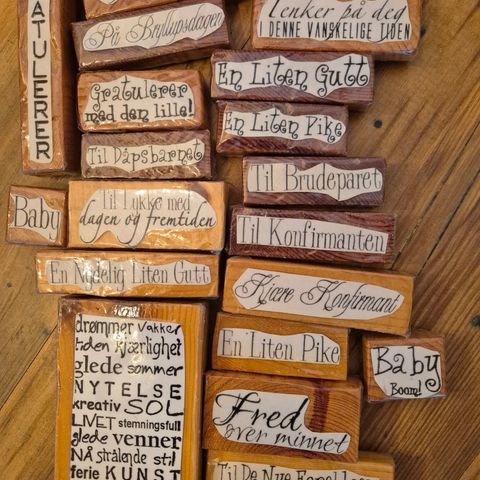 På Bryllupsdagen
Tenker på deg
I DENNE VANSKELIGE TIDEN
ATULERER
Gratulerer
med den lille!
En Liten Gutt
En Liten Pike
Til Dåpsbarnet
Til Brudeparet
Baby
Til Lykke med
dagen og fremtiden
Til Konfirmanten
En Nydelig Liten Gutt
Kjære Konfirmant
En Liten Pike
Baby
Boom!
drømmer vakker
tiden kjærlighet
glede sommer
NYTELSE
kreativ SOL
LIVET stemningsfull
glede venner
NÅ strålende stil
ferie KUNST
Fred
over minnet
Til De Nye